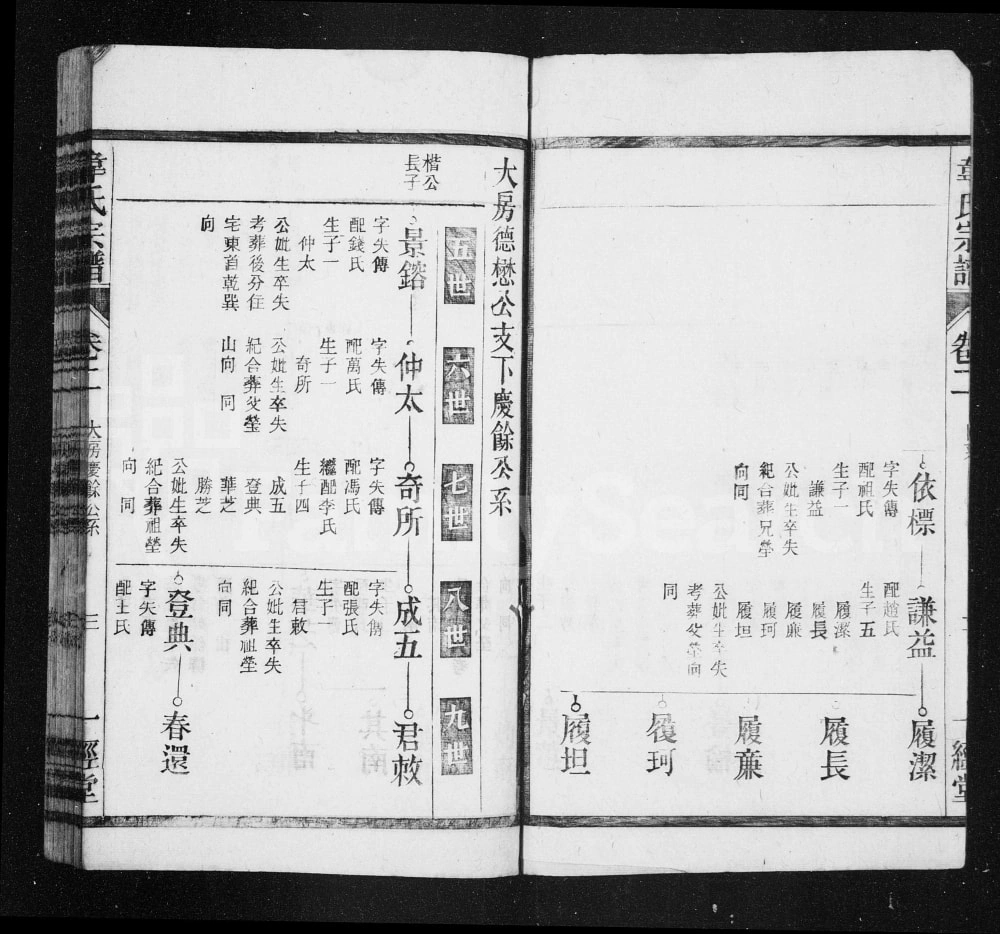 韋氏宗譜
卷二
一經堂
依標
字失傳
配祖氏
生子一
謙益
公妣生卒失
紀合葬兄塋
向同
謙益
配趙氏
生子五
履潔
履長
履廉
履珂
履坦
公妣生卒失
考葬父塋向
同
履潔
履長
履廉
履珂
履坦
大房德懋公支下慶餘公系
五世
六世
七世
八世
九世
楷公
長子
景鎔
字失傳
配錢氏
生子一
仲太
公妣生卒失
考葬後分住
宅東首乾巽
向
仲太
字失傳
配萬氏
生子一
奇所
公妣生卒失
紀合葬父塋
山向同
奇所
字失傳
配馮氏
繼配李氏
生子四
成五
登典
華芝
勝芝
公妣生卒失
紀合葬祖塋
向同
成五
字失傳
配張氏
生子一
君敕
公妣生卒失
紀合葬祖塋
向同
君敕
登典
字失傳
配王氏
春還
韋氏宗譜
卷二
大房慶餘公系
三
一經堂